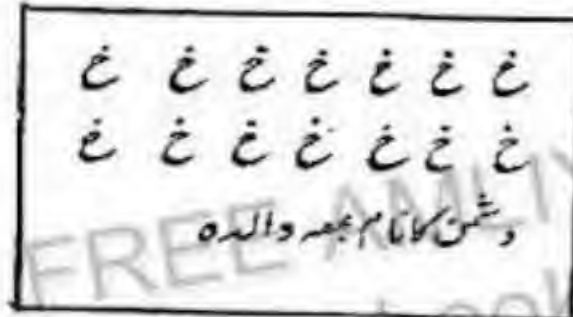 خ خ خ خ خ خ خ
خ خ خ خ خ خ خ
دشمن کا نام بمعہ والدہ
FREE AMLIY